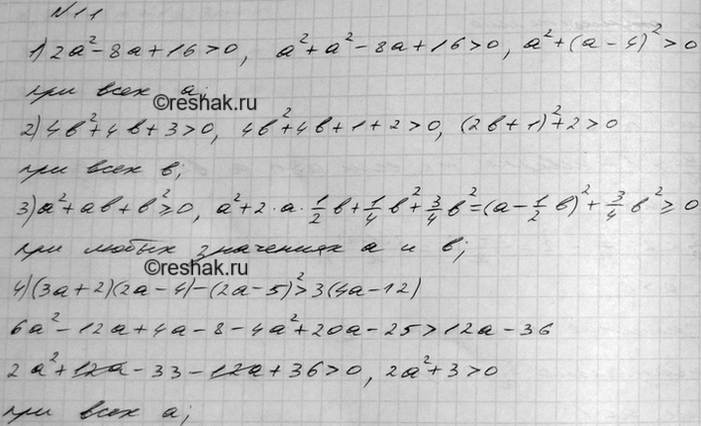 №11
1) 2a² - 8a + 16 > 0, a² + a² - 8a + 16 > 0, a² + (a - 4)² > 0
при всех a;
©reshak.ru
2) 4b² + 4b + 3 > 0, 4b² + 4b + 1 + 2 > 0, (2b + 1)² + 2 > 0
при всех b;
3) a² + ab + b² ≥ 0, a² + 2·a·1/2 b + 1/4 b² + 3/4 b² = (a - 1/2 b)² + 3/4 b² ≥ 0
при любых значениях a и b;
©reshak.ru
4) (3a + 2)(2a - 4) - (2a - 5)² > 3(4a - 12)
6a² - 12a + 4a - 8 - 4a² + 20a - 25 > 12a - 36
2a² + 12a - 33 - 12a + 36 > 0, 2a² + 3 > 0
при всех a;